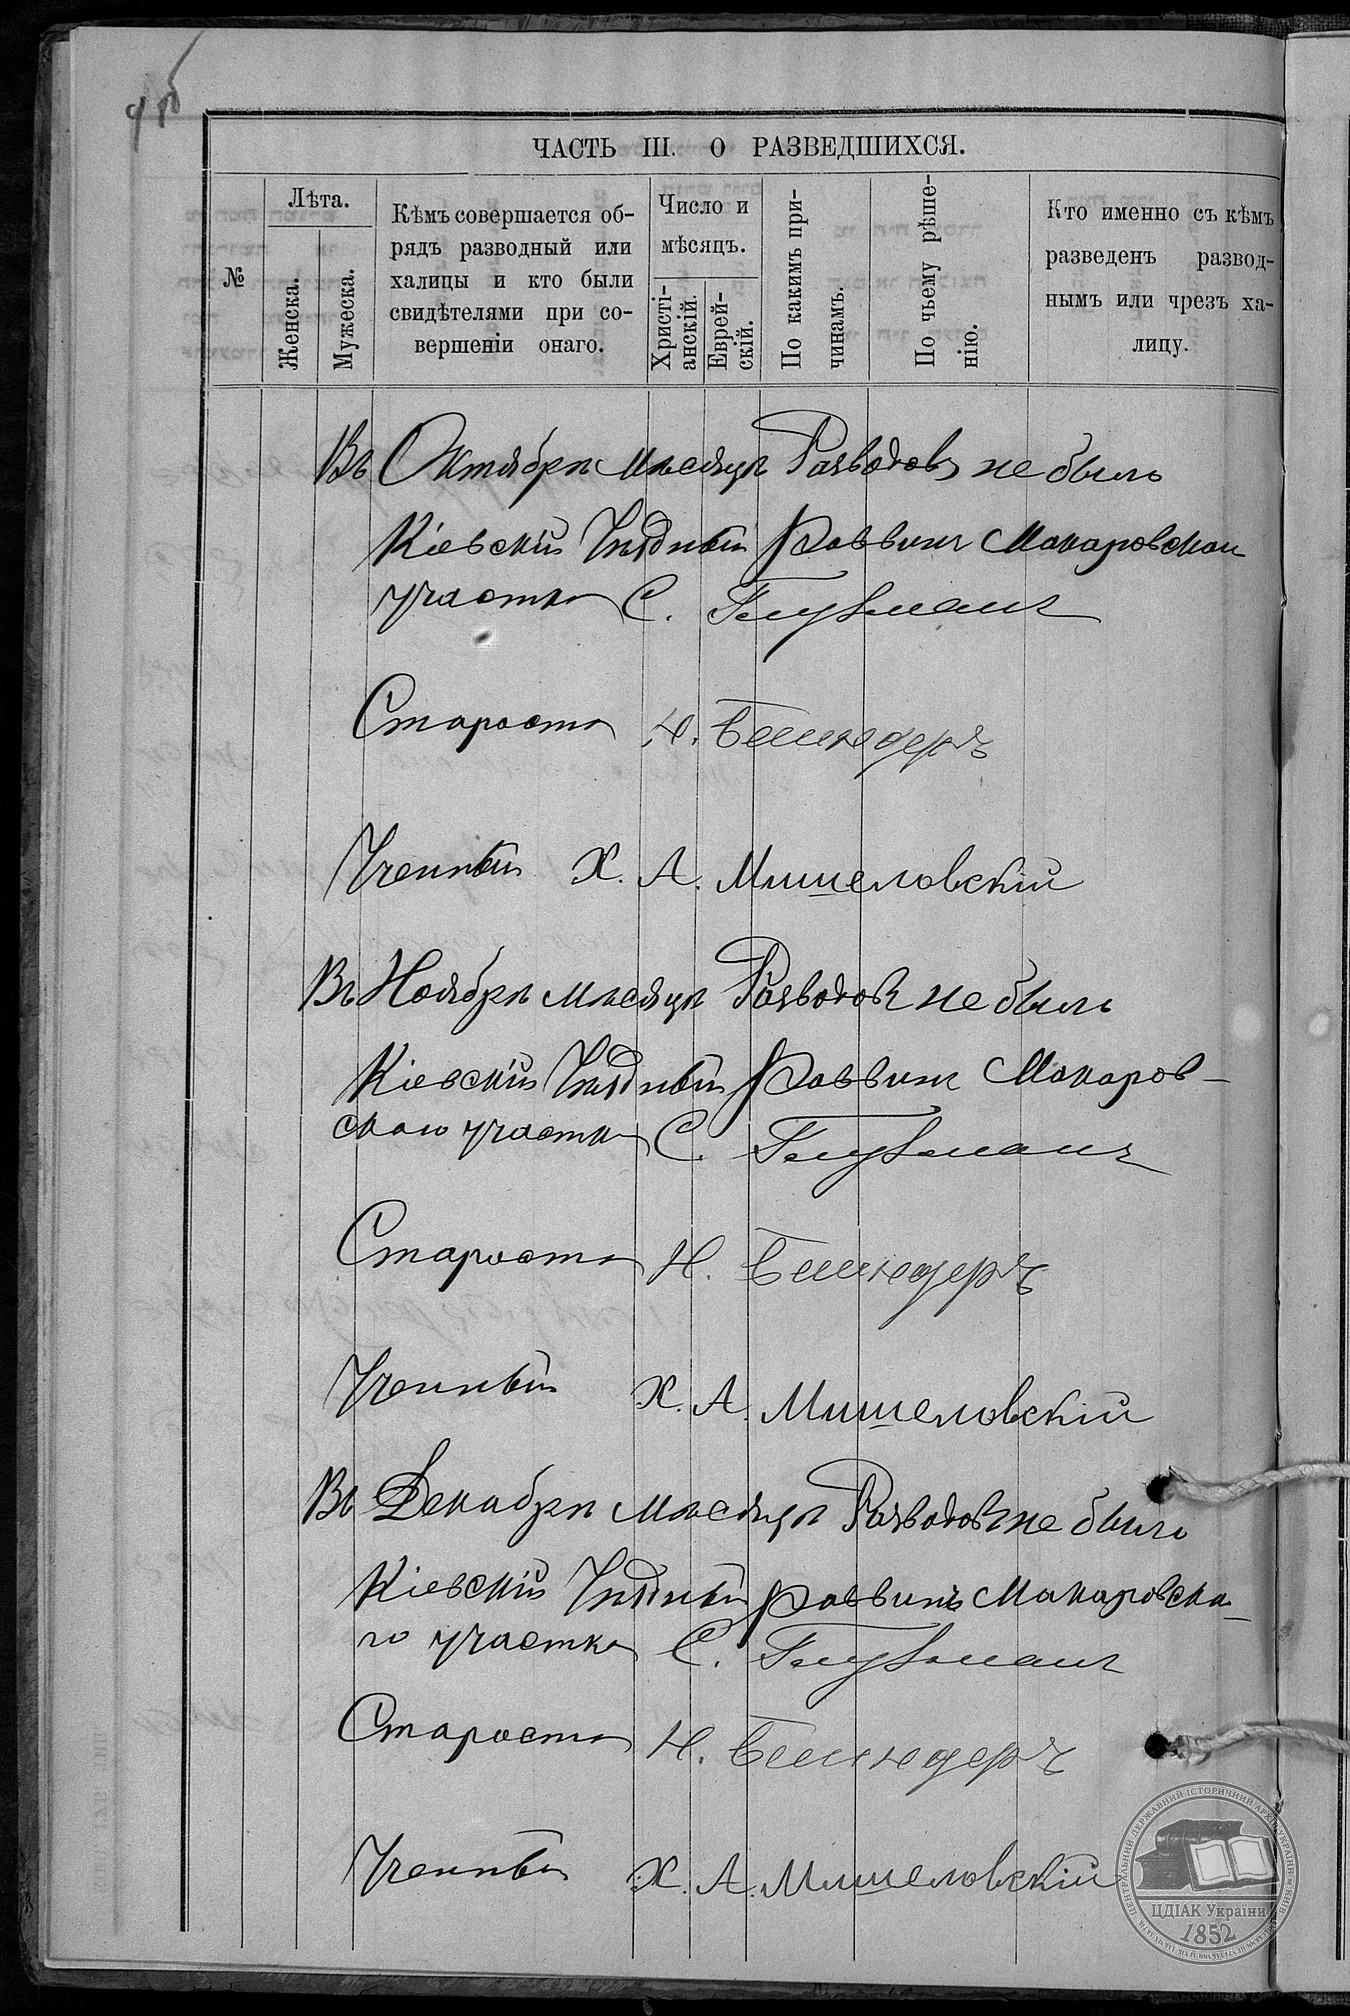 ЧАСТЬ III. О РАЗВЕДШИХСЯ.
№
Лѣта.
Женска.
Мужеска.
Кѣмъ совершается об-
рядъ разводный или
халицы и кто были
свидѣтелями при со-
вершеніи онаго.
Число и
мѣсяцъ.
Христі-
анскій.
Еврей-
скій.
По какимъ при-
чинамъ.
По чьему рѣше-
нію.
Кто именно съ кѣмъ
разведенъ развод-
нымъ или чрезъ ха-
лицу.
Въ Октябрѣ мѣсяцѣ Разводовъ не было
Кіевскій Уѣздный Раввинъ Макаровскаго
участка С.
Староста Н.
Ученый Х. А. Мишеловскій
Въ Ноябрѣ мѣсяцѣ Разводовъ не было
Кіевскій Уѣздный Раввинъ Макаров-
скаго участка С.
Староста Н.
Ученый Х. А. Мишеловскій
Въ Декабрѣ мѣсяцѣ Разводовъ не было
Кіевскій Уѣздный Раввинъ Макаровска-
го участка С.
Староста Н.
Ученый Х. А. Мишеловскій
ЦЕНТРАЛЬНИЙ ДЕРЖАВНИЙ ІСТОРИЧНИЙ АРХІВ УКРАЇНИ м. КИЇВ
ЦДІАК України
1852